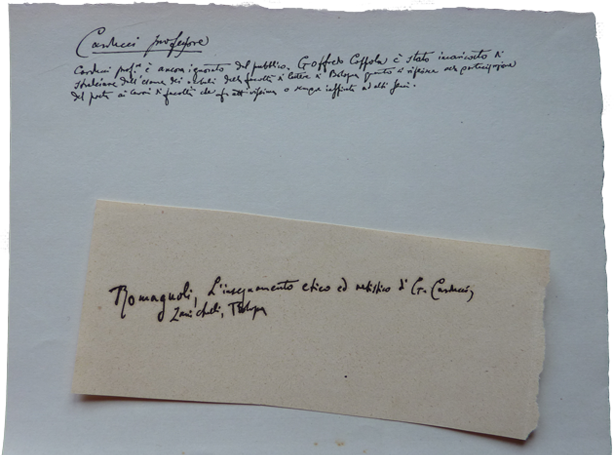 Carducci professore
Carducci prof.re è ancora ignorato dal pubblico. Goffredo Coppola è stato incaricato di
dell'esame dei verbali della facoltà di lettere di Bologna quanto si riferisce alla partecipazione
del poeta ai lavori di facoltà che
Romagnoli, L'insegnamento etico ed artistico di G. Carducci,
Zanichelli, Bologna